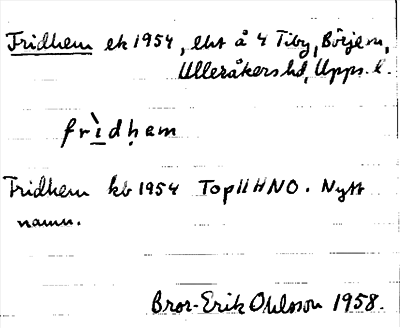 Fridhem ek 1954, lht å 4 Tiby, Börje sn,
Ulleråkers hd, Upps. l.
frìdḥem
Fridhem kb 1954 Top11HNO. Nytt
namn.
Bror-Erik Ohlsson 1958.